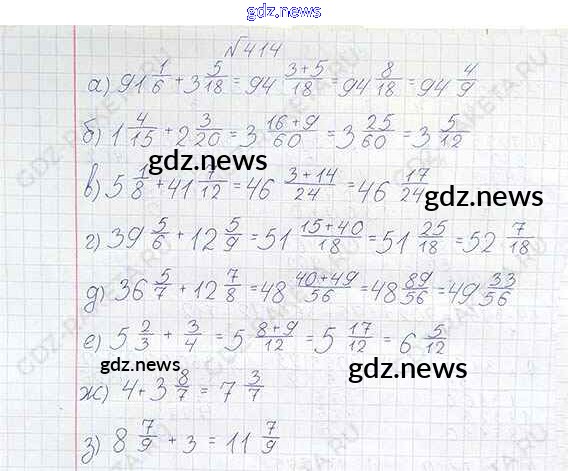 gdz.nets.ru
№414
а) 91 1/6 + 3 5/18 = 94 (3+5)/18 = 94 8/18 = 94 4/9
б) 1 4/15 + 2 3/20 = 3 (16+9)/60 = 3 25/60 = 3 5/12
gdz.nets.ru
в) 5 1/8 + 41 7/12 = 46 (3+14)/24 = 46 17/24
gdz.nets.ru
г) 39 5/6 + 12 5/9 = 51 (15+40)/18 = 51 25/18 = 52 7/18
д) 36 5/7 + 12 7/8 = 48 (40+49)/56 = 48 89/56 = 49 33/56
е) 5 2/3 + 3/4 = 5 (8+9)/12 = 5 17/12 = 6 5/12
gdz.nets.ru
gdz.nets.ru
ж) 4 + 3 8/7 = 7 3/7
з) 8 7/9 + 3 = 11 7/9